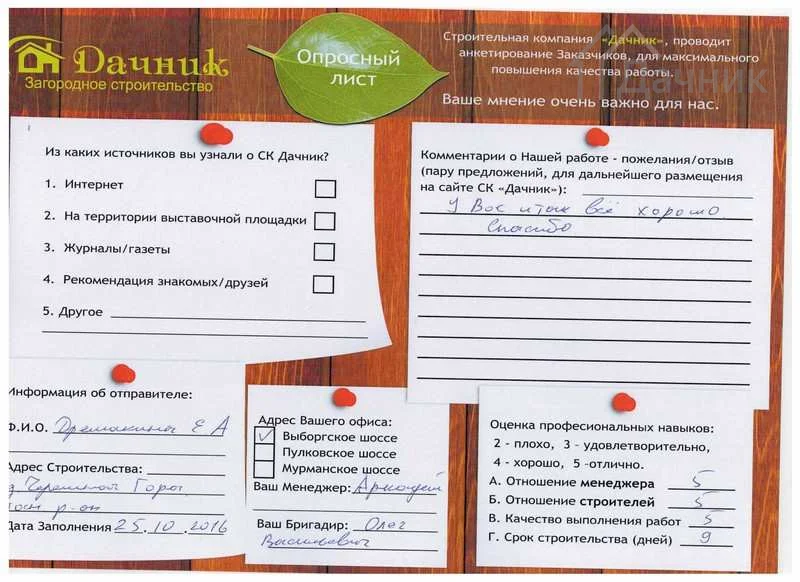 Дачник
Загородное строительство
Опросный
лист
Строительная компания «Дачник», проводит
анкетирование Заказчиков, для максимального
повышения качества работы.
Ваше мнение очень важно для нас.
Дачник
Из каких источников вы узнали о СК Дачник?
1. Интернет
2. На территории выставочной площадки
3. Журналы/газеты
4. Рекомендация знакомых/друзей
5. Другое
Комментарии о Нашей работе - пожелания/отзыв
(пару предложений, для дальнейшего размещения
на сайте СК «Дачник»):
У Вас итак всё хорошо
Спасибо
Информация об отправителе:
Ф.И.О. Е А
Адрес Строительства:
д. Горы
р-он
Дата Заполнения 25.10.2016
Адрес Вашего офиса:
Выборгское шоссе
Пулковское шоссе
Мурманское шоссе
Ваш Менеджер: Аркадий
Ваш Бригадир: Олег
Васильевич
Оценка профессиональных навыков:
2 - плохо, 3 - удовлетворительно,
4 - хорошо, 5 -отлично.
А. Отношение менеджера 5
Б. Отношение строителей 5
В. Качество выполнения работ 5
Г. Срок строительства (дней) 9